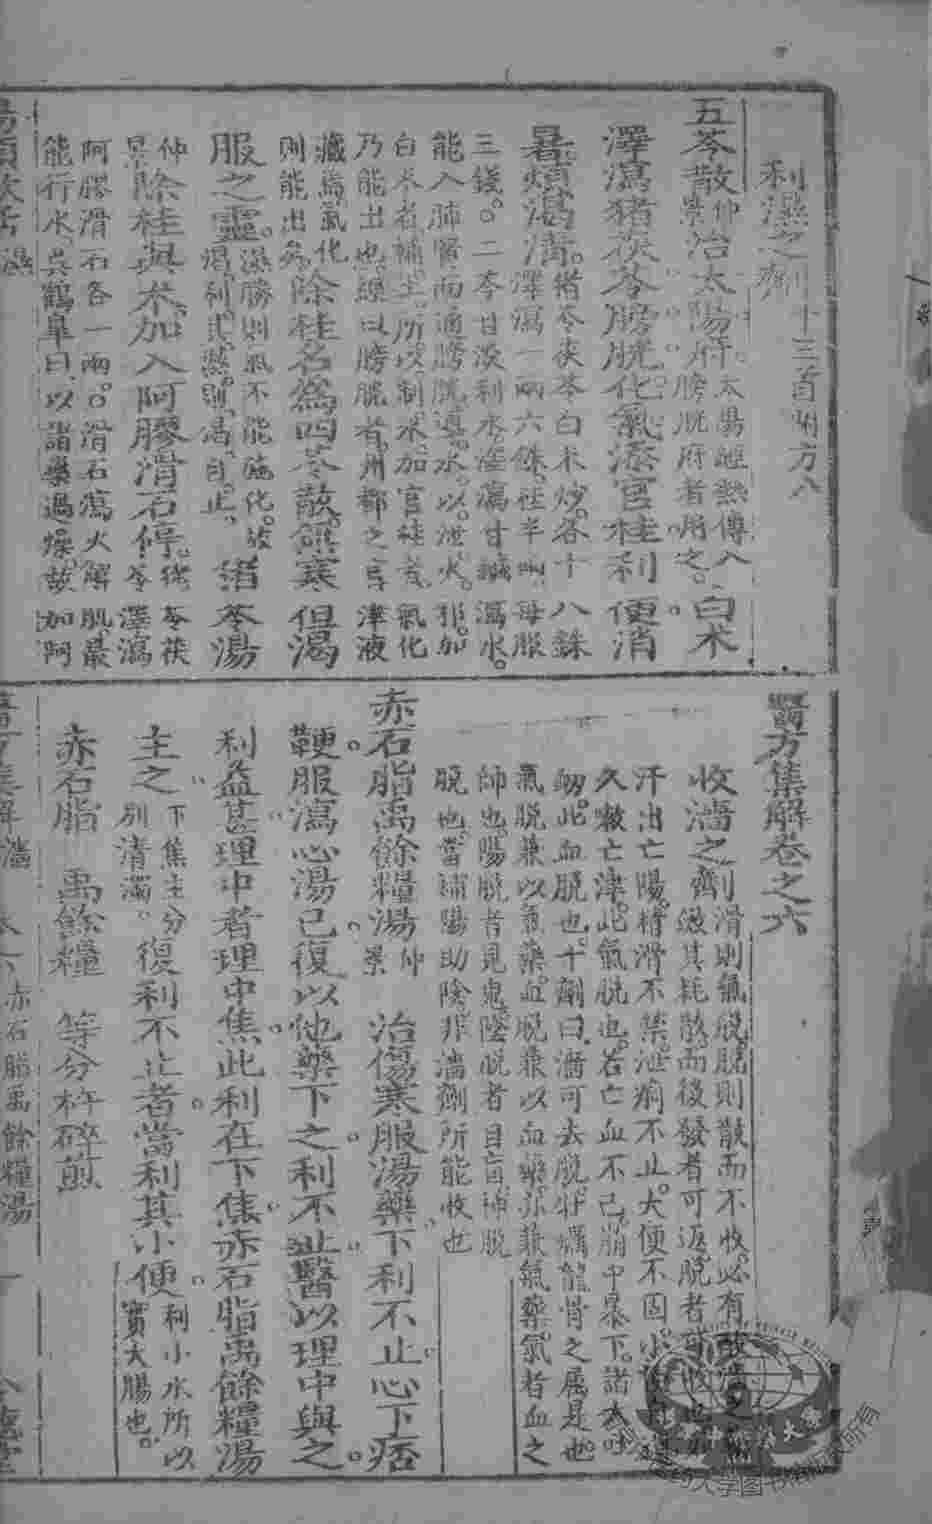 利濕之劑 十三首附方八
五苓散 仲景 治太陽府 太陽經熱傳入膀胱府者用之。 白朮
澤瀉猪茯苓膀胱化氣添官桂利便消
暑煩渴清。 猪苓茯苓白朮炒。各十八銖
澤瀉一兩六銖。桂半兩。每服
三錢。○二苓甘淡利水。澤瀉甘鹹瀉水。
能入肺腎而通膀胱。導水以泄火。
白朮者補土。所以制水。加官桂者。氣化
乃能出也。經曰膀胱者。州都之官津液
藏焉。氣化則能出矣。 除桂名爲四苓散。無寒但渴
服之靈。 濕勝則氣不能施化。故渴。利其濕則渴自止。 猪苓湯
仲景 除桂與朮。加入阿膠滑石停。 猪苓茯苓澤瀉
阿膠滑石各一兩。○滑石瀉火解肌。最
能行水。吳鶴皐曰。以諸藥過燥。故加阿
醫方集解卷之六
收濇之劑 滑則氣脱。脱則散而不收。必有
斂其耗散。而後發者可返。脱者可收也。
汗出亡陽。精滑不禁。泄痢不止。大便不固。小
久嗽亡津。此氣脱也。若亡血不已。崩中暴下。諸大吐
衂。此血脱也。十劑曰。濇可去脱。牡蠣龍骨之屬是也。
氣脱兼以氣藥。血脱兼以血藥。亦兼氣藥。氣者血之
帥也。陽脱者見鬼。陰脱者目盲。神脱
脱也。當補陽助陰。非濇劑所能收也
赤石脂禹餘糧湯 仲景 治傷寒服湯藥下利不止心下痞
鞕。服瀉心湯已。復以他藥下之。利不止。醫以理中與之。
利益甚。理中者理中焦。此利在下焦。赤石脂禹餘糧湯
主之。 下焦主分別清濁。 復利不止者。當利其小便。 利小水所以實大腸也。
赤石脂 禹餘糧 等分杵碎煎
赤石脂禹餘糧湯 一